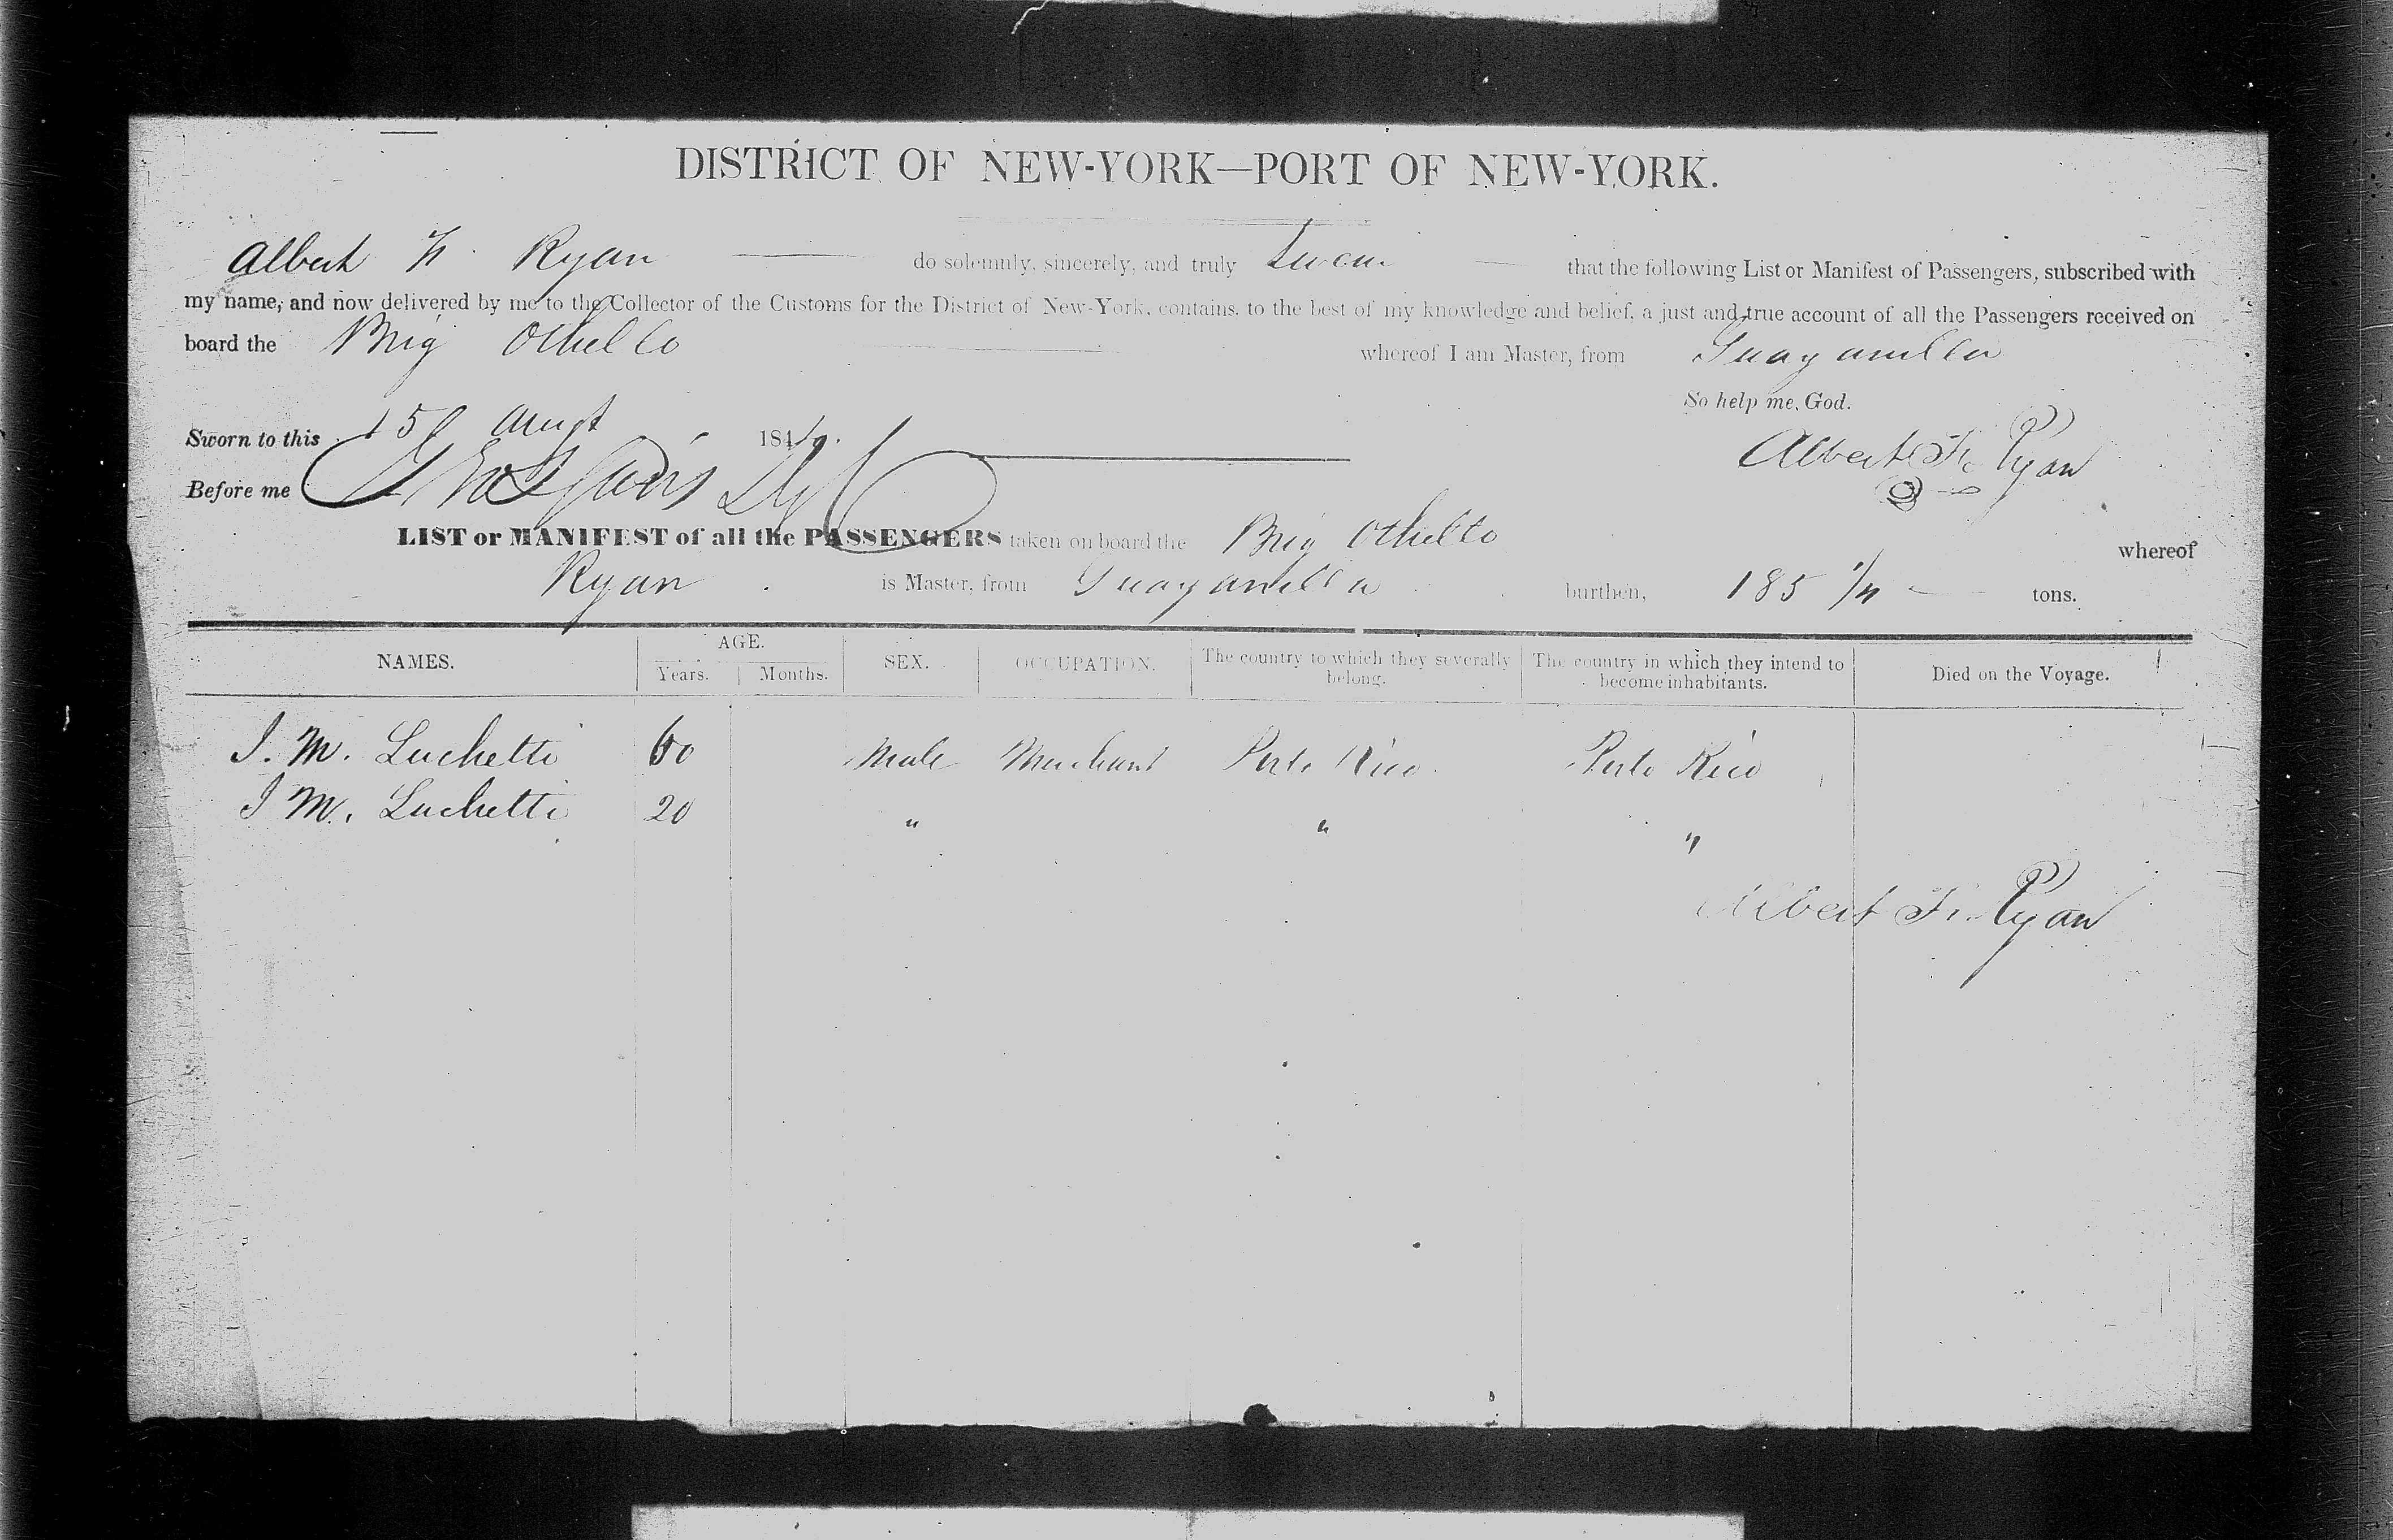 DISTRICT OF NEW-YORK—PORT OF NEW-YORK.
Albert F. Ryan do solemnly, sincerely, and truly swear that the following List or Manifest of Passengers, subscribed with
my name, and now delivered by me to the Collector of the Customs for the District of New-York, contains, to the best of my knowledge and belief, a just and true account of all the Passengers received on
board the Brig Othello whereof I am Master, from Guayanilla
So help me, God.
Sworn to this 15 Augt 184
Albert F. Ryan
Before me
LIST or MANIFEST of all the PASSENGERS taken on board the Brig Othello whereof
Ryan is Master, from Guayanilla burthen, 185 tons.
NAMES. AGE. Years. Months. SEX. OCCUPATION. The country to which they severally belong. The country in which they intend to become inhabitants. Died on the Voyage.
J. M. Luchetti 60 Male Merchant Porto Rico Porto Rico
J M. Luchetti 20 " " "
Albert F. Ryan